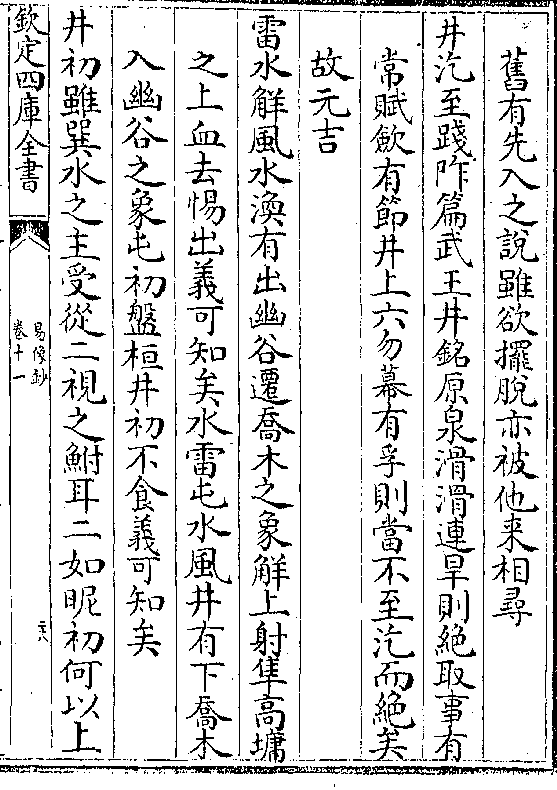 舊有先入之說雖欲擺脫亦被他来相尋
井汔至踐阼篇武王井銘原泉滑滑連旱則絶取事有
常賦歛有節井上六勿幕有孚則當不至汔而絶矣
故元吉
雷水解風水渙有出幽谷遷喬木之象解上射隼高墉
之上血去惕出義可知矣水雷屯水風井有下喬木
入幽谷之象屯初盤桓井初不食義可知矣
井初雖巽水之主受從二視之鮒耳二如昵初何以上
欽定四庫全書
易像鈔
卷十一
二十八